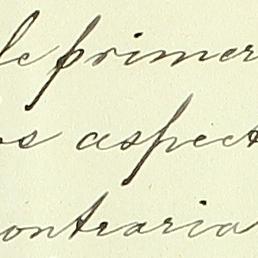 de primer
os aspect
ontraria